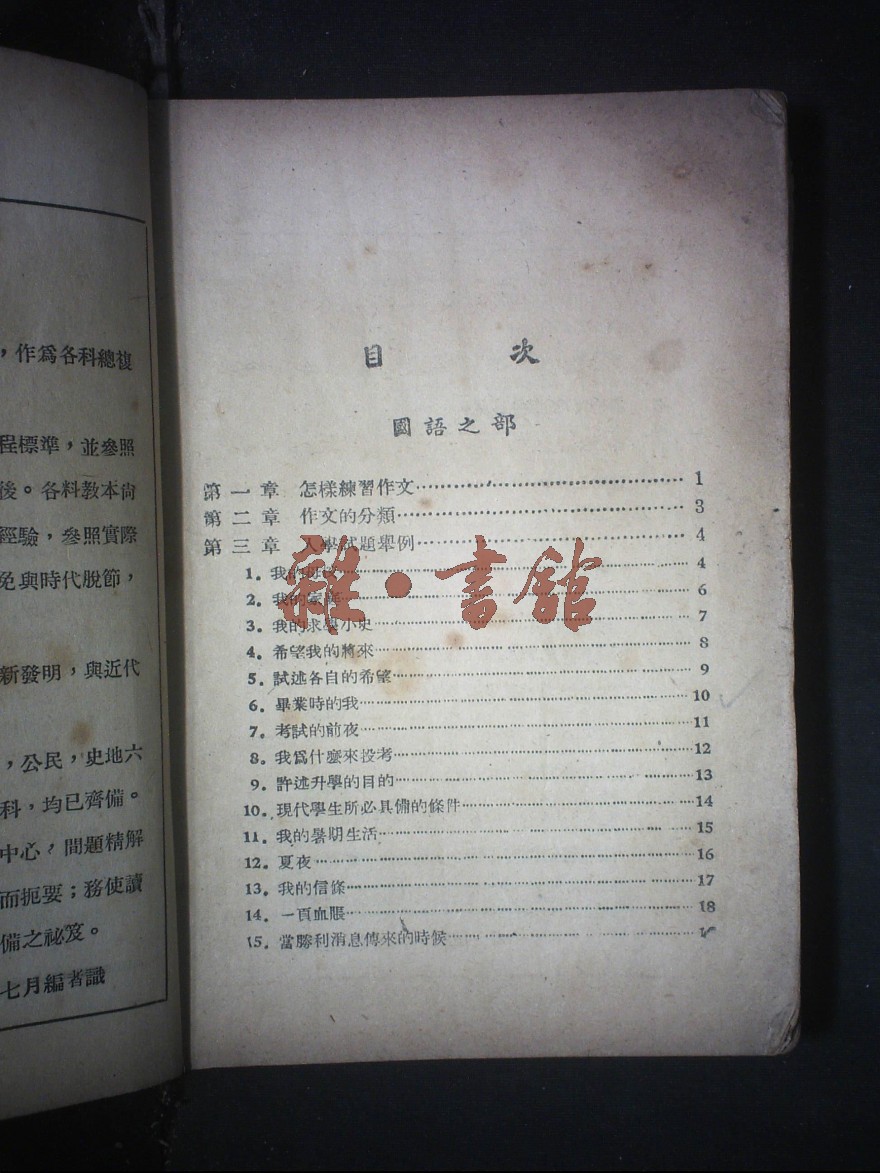 ，作爲各科總複
程標準，並參照
後。各料教本尙
經驗，參照實際
免與時代脫節，
新發明，與近代
，公民，史地六
科，均已齊備。
中心，間題精解
而扼要；務使讀
備之祕笈。
七月編者識
目 次
國語之部
第一章 怎樣練習作文 1
第二章 作文的分類 3
第三章 入學試題舉例 4
1. 我的 4
2. 我的家庭 6
3. 我的求學小史 7
4. 希望我的將來 8
5. 試述各自的希望 9
6. 畢業時的我 10
7. 考試的前夜 11
8. 我爲什麼來投考 12
9. 許述升學的目的 13
10. 現代學生所必具備的條件 14
11. 我的暑期生活 15
12. 夏夜 16
13. 我的信條 17
14. 一頁血賬 18
15. 當勝利消息傳來的時候
雜·書館